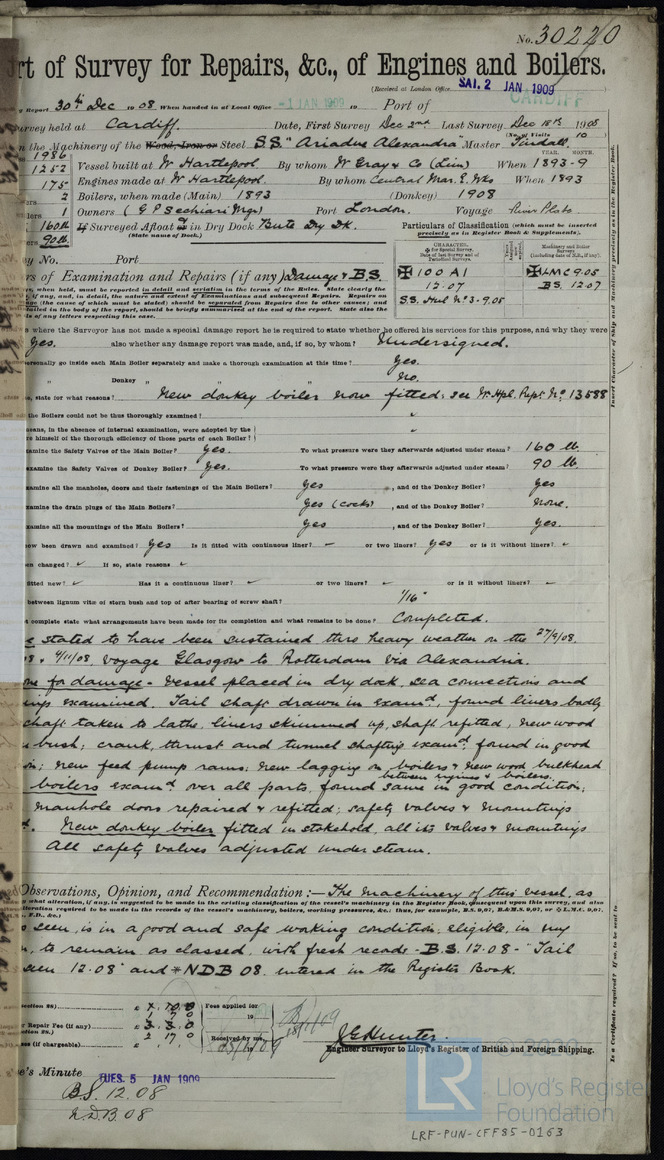 No. 30220
rt of Survey for Repairs, &c., of Engines and Boilers.
(Received at London Office SAT. 2 JAN 1909
y Report 30th Dec 1908 When handed in at Local Office -1 JAN 1909 19 Port of CARDIFF
urvey held at Cardiff. Date, First Survey Dec 2nd Last Survey Dec 18th 1908
(No. of Visits 10
n the Machinery of the Wood, Iron or Steel S.S. "Ariadne Alexandra" Master Tindall.
YEAR. MONTH.
1986
1252 Vessel built at W Hartlepool By whom W Gray & Co (Lim) When 1893-9
175 Engines made at W Hartlepool. By whom Central Mar. E. Wks When 1893
2 Boilers, when made (Main) 1893 (Donkey) 1908
1 Owners (G P Sechiari Mgr) Port London. Voyage River Plate
160 lb If Surveyed Afloat or in Dry Dock Bute Dry Dk.
(State name of Dock.)
90 lb.
Particulars of Classification (which must be inserted
precisely as in Register Book & Supplements).
CHARACTER.
✠ for Special Survey.
Date of last Survey and of
Periodical Surveys.
Machinery and Boiler
Surveys
(including date of N.B., if any).
✠ 100 A1
12.07
S.S. Hul No 3-9.05
✠ LMC 9.05
BS. 12.07
ey No. Port
rs of Examination and Repairs (if any) Damage & B.S.
s, when held, must be reported in detail and seriatim in the terms of the Rules. State clearly the
, if any, and, in detail, the nature and extent of Examinations and subsequent Repairs. Repairs on
(the cause of which must be stated) should be separated from Repairs due to other causes; and
tailed in the body of the report, should be briefly summarised at the end of the report. State also the
s of any letters respecting this case.
n where the Surveyor has not made a special damage report he is required to state whether he offered his services for this purpose, and why they were
yes. also whether any damage report was made, and, if so, by whom? Undersigned.
ersonally go inside each Main Boiler separately and make a thorough examination at this time? Yes.
" Donkey " " " No.
, state for what reasons? New donkey boiler now fitted: see W. Hpl. Rept. No. 13588
the Boilers could not be thus thoroughly examined? "
eans, in the absence of internal examination, were adopted by the
re himself of the thorough efficiency of those parts of each Boiler? "
xamine the Safety Valves of the Main Boiler? Yes. To what pressure were they afterwards adjusted under steam? 160 lb.
examine the Safety Valves of Donkey Boiler? Yes. To what pressure were they afterwards adjusted under steam? 90 lb.
xamine all the manholes, doors and their fastenings of the Main Boilers? Yes , and of the Donkey Boiler? Yes
xamine the drain plugs of the Main Boilers? Yes (cocks) , and of the Donkey Boiler? None.
xamine all the mountings of the Main Boilers? Yes , and of the Donkey Boiler? Yes.
ow been drawn and examined? Yes Is it fitted with continuous liner? - or two liners? Yes or is it without liners?
en changed? If so, state reasons
fitted new? Has it a continuous liner? or two liners? or is it without liners?
between lignum vitæ of stern bush and top of after bearing of screw shaft? 1/16"
t complete state what arrangements have been made for its completion and what remains to be done? Completed.
stated to have been sustained thro heavy weather on the 27/9/08
8 & 4/11/08, voyage Glasgow to Rotterdam via Alexandria.
one for damage - Vessel placed in dry dock, sea connections and
ings examined. Tail shaft drawn in examd, found liners badly
shaft taken to lathe, liners skimmed up, shaft refitted, new wood
bush; crank, thrust and tunnel shafting examd, found in good
on; new feed pump rams; new lagging on boilers & new wood bulkhead
between engines & boilers.
boilers examd over all parts, found same in good condition,
manhole doors repaired & refitted; safety valves & mountings
d. New donkey boiler fitted in stokehold, all its valves & mountings
All safety valves adjusted under steam.
Observations, Opinion, and Recommendation:— The machinery of this vessel, as
what alteration, if any, is suggested to be made in the existing classification of the vessel's machinery in the Register Book, consequent upon this survey, and also
alteration required to be made in the records of the vessel's machinery, boilers, working pressures, &c.: thus, for example, B.S. 9,07, B.&M.S. 9,07, or ✠L.M.C. 9,07,
, F.D., &c.)
seen, is in a good and safe working condition, eligible, in my
n, to remain as classed, with fresh records - B.S. 12.08 - Tail
seen 12.08 and *NDB 08, entered in the Register Book.
ection 28)
Fees applied for
19
r Repair Fee (if any)
ection 28.)
2 17 0
Received by me,
es (if chargeable)
J G Hunter
Engineer Surveyor to Lloyd's Register of British and Foreign Shipping.
e's Minute TUES. 5 JAN 1909
B.S. 12.08
N.D.B. 08
Insert Character of Ship and Machinery precisely as in the Register Book.
Is a Certificate required? If so, to be sent to
© 2020
LR
Lloyd's Register
Foundation
LRF-PUN-CFF85-0163